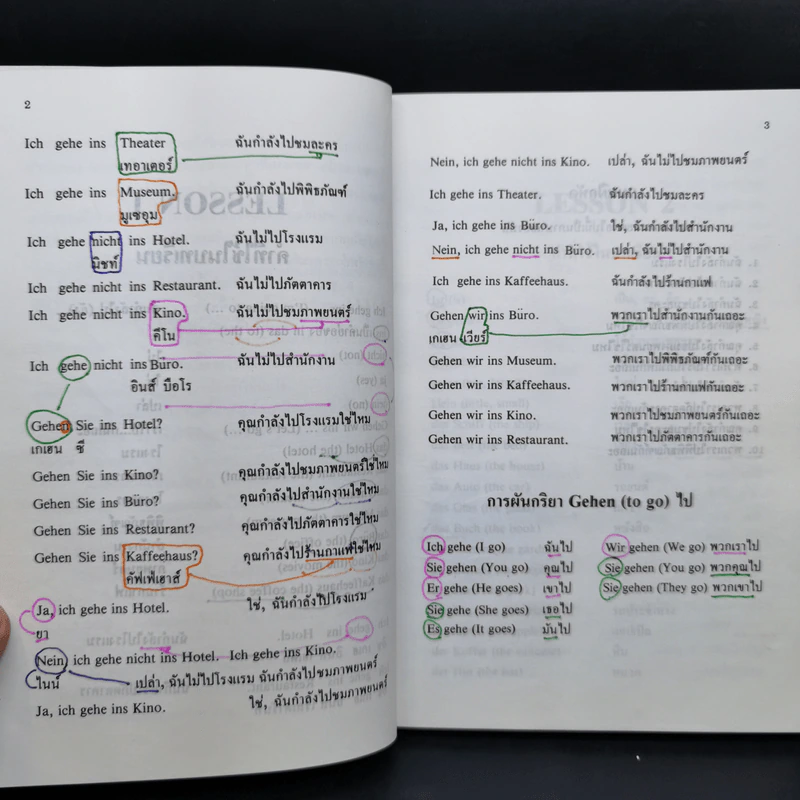 2
Ich gehe ins Theater ฉันกำลังไปชมละคร
เทอาเตอร์
Ich gehe ins Museum. ฉันกำลังไปพิพิธภัณฑ์
มูเซอุม
Ich gehe nicht ins Hotel. ฉันไม่ไปโรงแรม
นิชท์
Ich gehe nicht ins Restaurant. ฉันไม่ไปภัตตาคาร
Ich gehe nicht ins Kino. ฉันไม่ไปชมภาพยนตร์
คีโน
Ich gehe nicht ins Büro. ฉันไม่ไปสำนักงาน
อินส์ บือโร
Gehen Sie ins Hotel? คุณกำลังไปโรงแรมใช่ไหม
เกเฮน ซี
Gehen Sie ins Kino? คุณกำลังไปชมภาพยนตร์ใช่ไหม
Gehen Sie ins Büro? คุณกำลังไปสำนักงานใช่ไหม
Gehen Sie ins Restaurant? คุณกำลังไปภัตตาคารใช่ไหม
Gehen Sie ins Kaffeehaus? คุณกำลังไปร้านกาแฟใช่ไหม
คัฟเฟ่เฮาส์
Ja, ich gehe ins Hotel. ใช่, ฉันกำลังไปโรงแรม
ยา
Nein, ich gehe nicht ins Hotel. Ich gehe ins Kino.
ไนน์ เปล่า, ฉันไม่ไปโรงแรม ฉันกำลังไปชมภาพยนตร์
Ja, ich gehe ins Kino. ใช่, ฉันกำลังไปชมภาพยนตร์
3
Nein, ich gehe nicht ins Kino. เปล่า, ฉันไม่ไปชมภาพยนตร์
Ich gehe ins Theater. ฉันกำลังไปชมละคร
Ja, ich gehe ins Büro. ใช่, ฉันกำลังไปสำนักงาน
Nein, ich gehe nicht ins Büro. เปล่า, ฉันไม่ไปสำนักงาน
Ich gehe ins Kaffeehaus. ฉันกำลังไปร้านกาแฟ
Gehen wir ins Büro. พวกเราไปสำนักงานกันเถอะ
เกเฮน เวียร์
Gehen wir ins Museum. พวกเราไปพิพิธภัณฑ์กันเถอะ
Gehen wir ins Kaffeehaus. พวกเราไปร้านกาแฟกันเถอะ
Gehen wir ins Kino. พวกเราไปชมภาพยนตร์กันเถอะ
Gehen wir ins Restaurant. พวกเราไปภัตตาคารกันเถอะ
การผันกริยา Gehen (to go) ไป
Ich gehe (I go) ฉันไป Wir gehen (We go) พวกเราไป
Sie gehen (You go) คุณไป Sie gehen (You go) พวกคุณไป
Er gehe (He goes) เขาไป Sie gehen (They go) พวกเขาไป
Sie gehe (She goes) เธอไป
Es gehe (It goes) มันไป